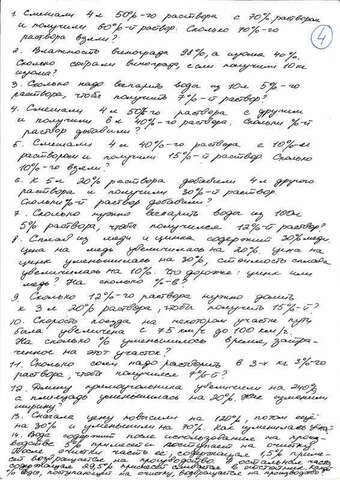 1. Смешали 4 л 50%-го раствора с 70% раствором
и получили 60%-й раствор. Сколько 70%-го
раствора взяли?
2. Влажность винограда 98%, а изюма 40%.
Сколько собрали винограда, если получили 10 кг
изюма?
3. Сколько надо выпарить воды из 10 л 5%-го
раствора, чтобы получить 7%-й раствор?
4. Смешали 4 л 50%-го раствора с другим
и получили 6 л 40%-го раствора. Сколько %-й
раствор добавили?
5. Смешали 4 л 40%-го раствора с 10%-м
раствором и получили 15%-й раствор. Сколько
10%-го взяли?
6. К 5 л 20% раствора добавили 4 л другого
раствора и получили 30%-й раствор.
Сколько %-й раствор добавили?
7. Сколько нужно выпарить воды из 100 л
5% раствора, чтобы получился 12%-й раствор?
8. Сплав из меди и цинка содержит 20% меди.
Цена на медь увеличилась на 20%, цена на
цинк уменьшилась на 30%, стоимость сплава
увеличилась на 10%. Что дороже: цинк или
медь? На сколько %-в?
9. Сколько 12%-го раствора нужно долить
к 3 л 20% раствора, чтобы получить 15%-й?
10. Скорость поезда на некотором участке пути
была увеличена с 75 км/ч до 100 км/ч.
На сколько % уменьшилось время, затра-
ченное на этот участок?
11. Сколько соли надо растворить в 3-х кг 3%-го
раствора, чтобы получился 7%-й?
12. Длину прямоугольника увеличили на 240%
а площадь уменьшилась на 20%. Как изменили
ширину?
13. Сначала цену повысили на 120%, потом ещё
на 30% и уменьшили на 70%. Как изменилась цена?
14. Вода содержит после использования на произ-
водстве 5% примесей и поступает на очистку.
После очистки часть её, содержащая 1,5% приме-
сей возвращается на производство, а остальная часть
содержащая 29,5% примесей сливается в отстойник.
воды, поступающей на очистку, возвращается на производство?